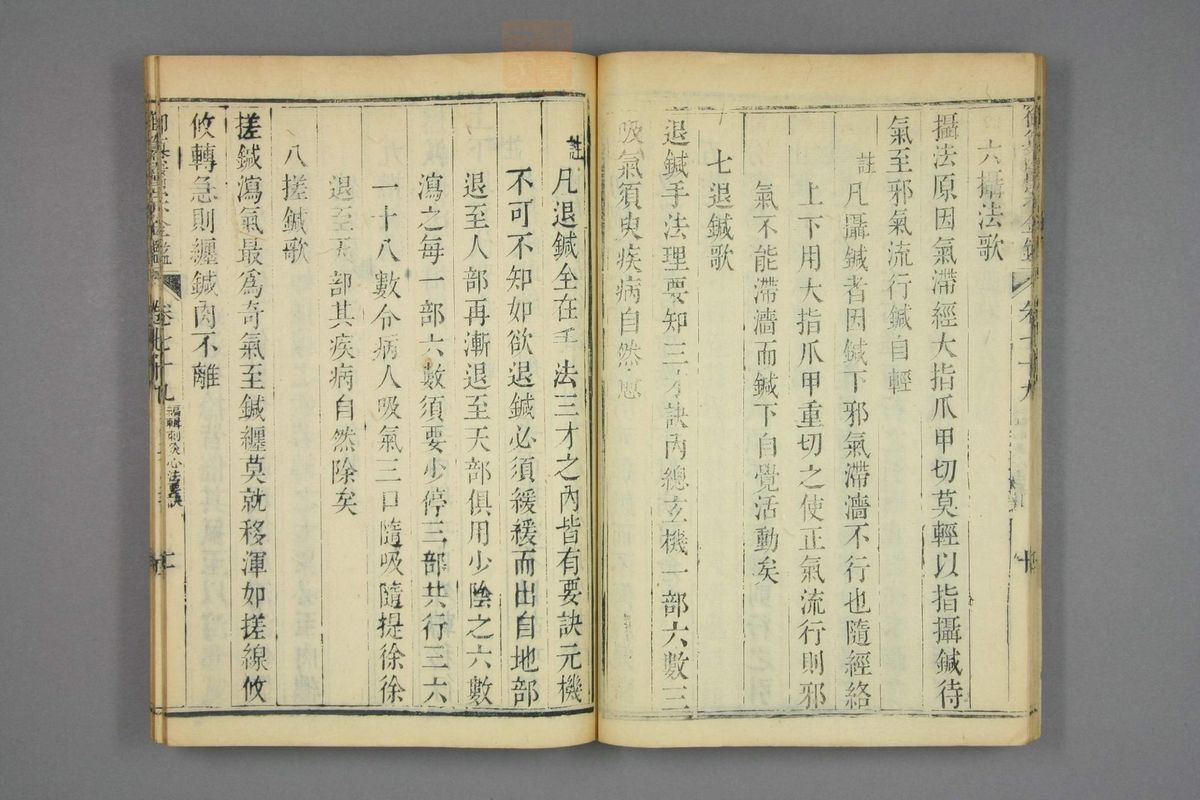 六攝法歌
攝法原因氣滯經大指爪甲切莫輕以指攝鍼待
氣至邪氣流行鍼自輕
註凡攝鍼者因鍼下邪氣滯濇不行也隨經絡
上下用大指爪甲重切之使正氣流行則邪
氣不能滯濇而鍼下自覺活動矣
七退鍼歌
退鍼手法理要知三才訣內總玄機一部六數三
吸氣須臾疾病自然愈
註凡退鍼全在手法三才之內皆有要訣元機
不可不知如欲退鍼必須緩緩而出自地部
退至人部再漸退至天部俱用少陰之六數
瀉之每一部六數須要少停三部共行三六
一十八數令病人吸氣三口隨吸隨提徐徐
退至天部其疾病自然除矣
八搓鍼歌
搓鍼瀉氣最爲奇氣至鍼纏莫就移渾如搓線攸
攸轉急則纏鍼肉不離
卷七十九 編輯刺灸心法要訣